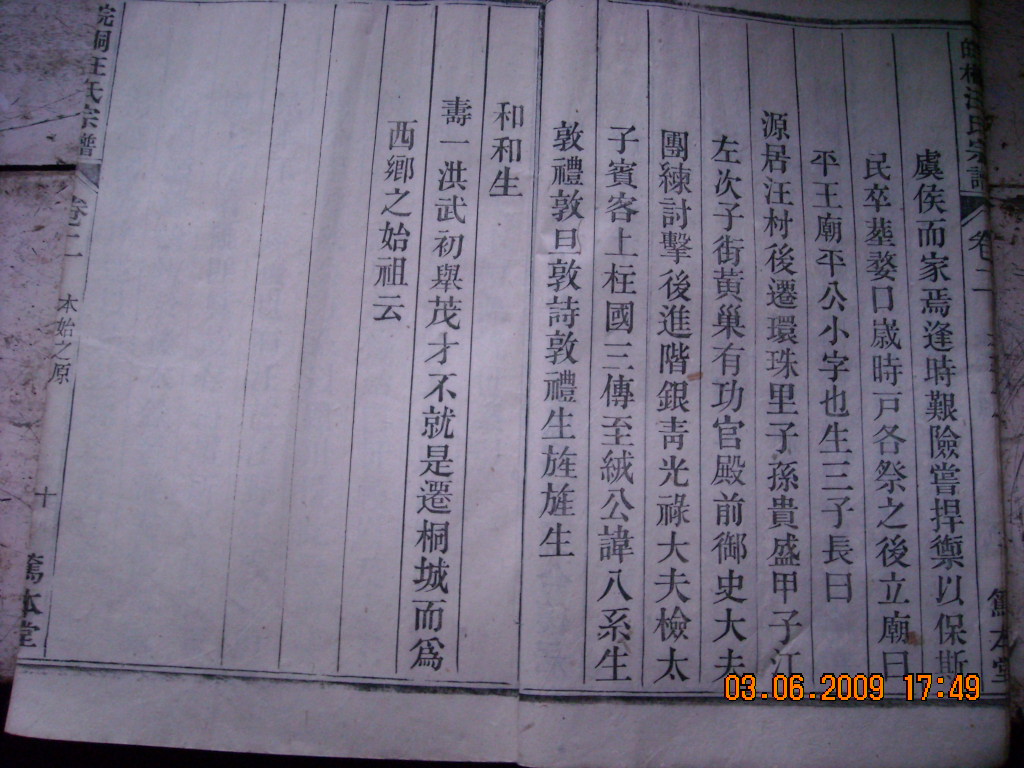 虞侯而家焉逢時艱險嘗捍禦以保斯
民卒塟婺口歲時戸各祭之後立廟曰
平王廟平公小字也生三子長曰
源居汪村後遷環珠里子孫貴盛甲子江
左次子街黃巢有功官殿前御史大夫
團練討擊後進階銀靑光祿大夫檢太
子賓客上柱國三傳至絨公諱八系生
敦禮敦旦敦詩敦禮生旌旌生
和和生
壽一洪武初舉茂才不就是遷桐城而爲
西鄕之始祖云
皖桐汪氏宗譜
卷二
本始之原
十
篤本堂